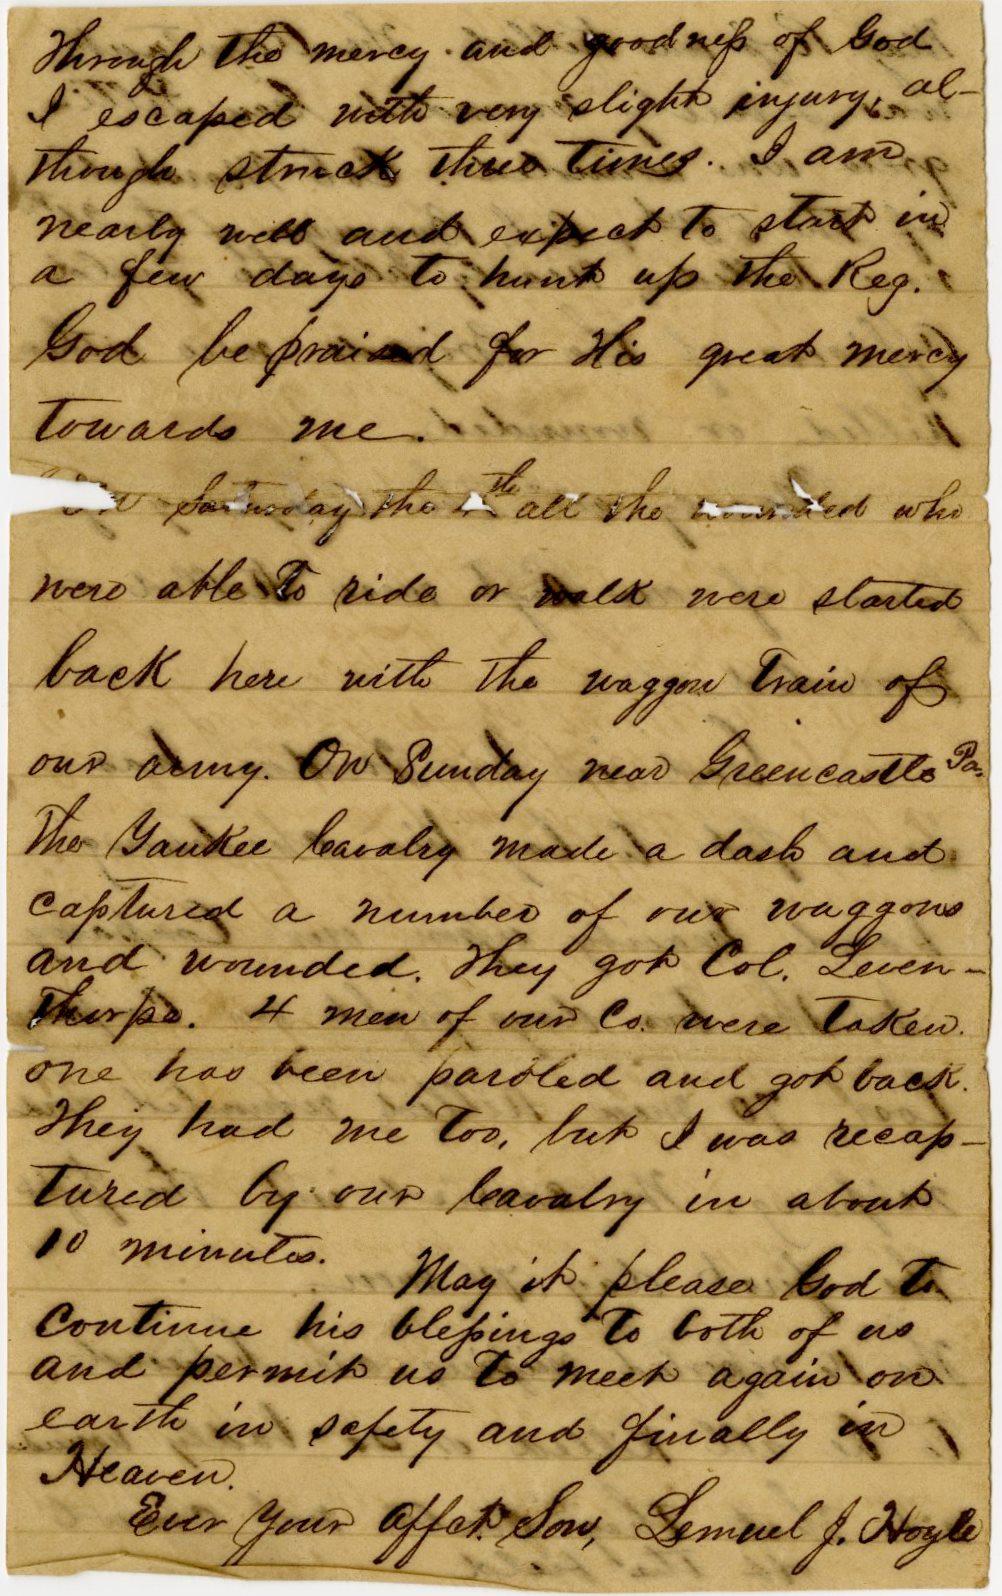 Through the mercy and goodness of God
I escaped with very slight injury, al-
though struck three times. I am
nearly well and expect to start in
a few days to hunt up the Reg.
God be praised for His great mercy
towards me.
On Saturday the 4th all the wounded who
were able to ride or walk were started
back here with the waggon train of
our army. On Sunday near Greencastle Pa.
the Yankee Cavalry made a dash and
captured a number of our waggons
and wounded. They got Col. Leven-
thorpe. 4 men of our Co. were taken.
one has been paroled and got back.
They had me too, but I was recap-
tured by our Cavalry in about
10 minutes.
May it please God to
continue his blessings to both of us
and permit us to meet again on
earth in safety and finally in
Heaven.
Ever Your affct. Son, Lemuel J. Hoyle